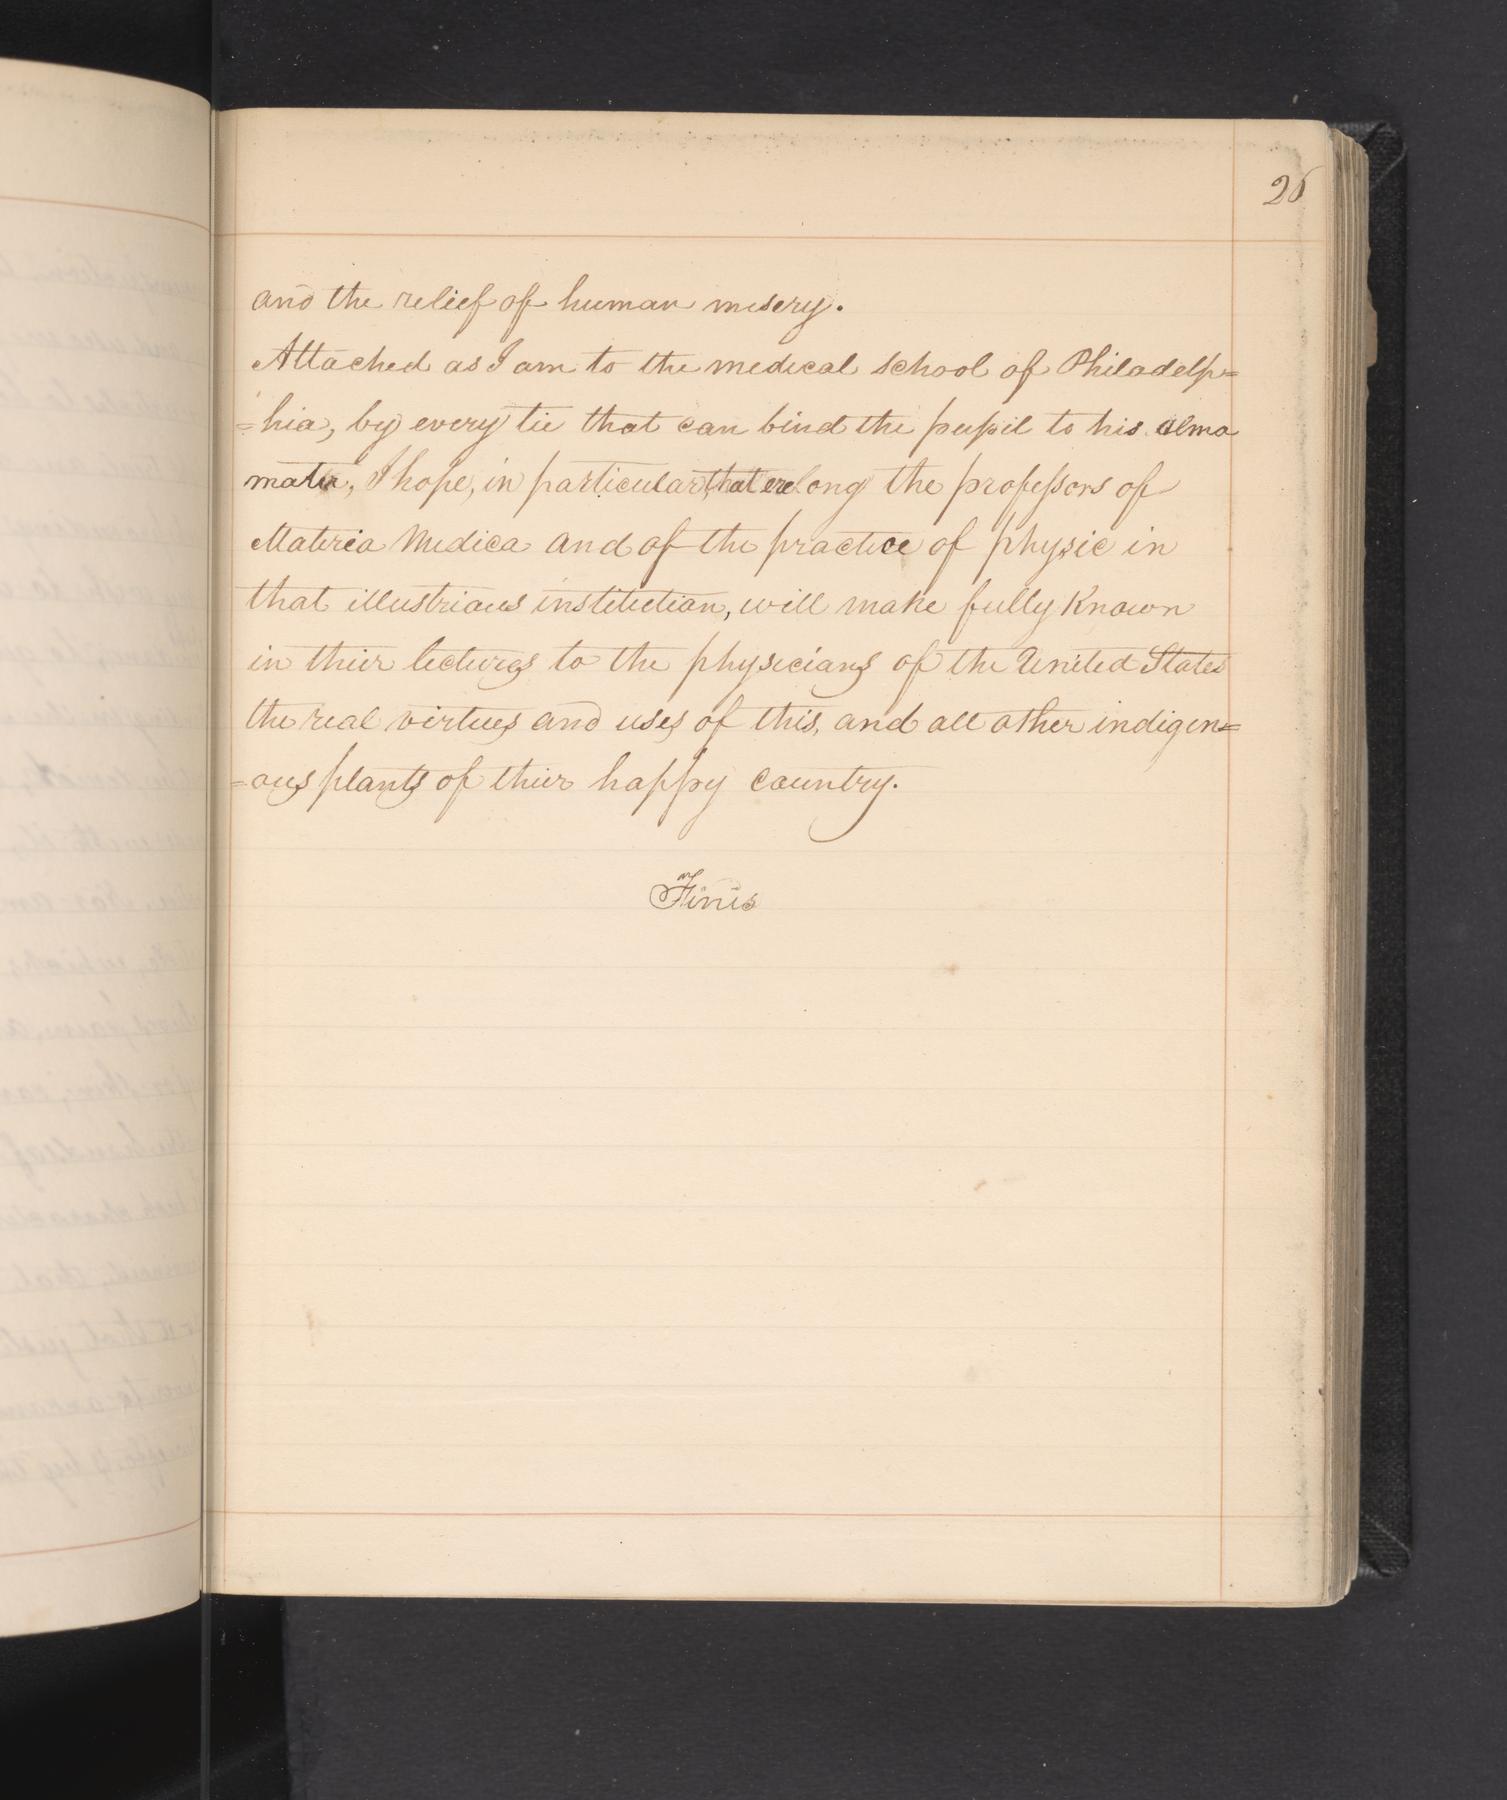 26
and the relief of human misery.
Attached as I am to the medical school of Philadelp=
=hia, by every tie that can bind the pupil to his alma
mater, I hope, in particular, that ere long the professors of
Materia Medica and of the practice of physic in
that illustrious institution, will make fully Known
in thier lectures to the physicians of the United States
the real virtues and uses of this, and all other indigen=
=ous plants of thier happy country.
Finis